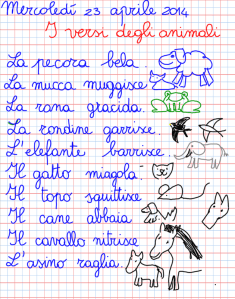 Mercoledì 23 aprile 2014
I versi degli animali
La pecora bela.
La mucca muggisce.
La rana gracida.
La rondine garrisce.
L'elefante barrisce.
Il gatto miagola.
Il topo squittisce.
Il cane abbaia
Il cavallo nitrisce
L'asino raglia.